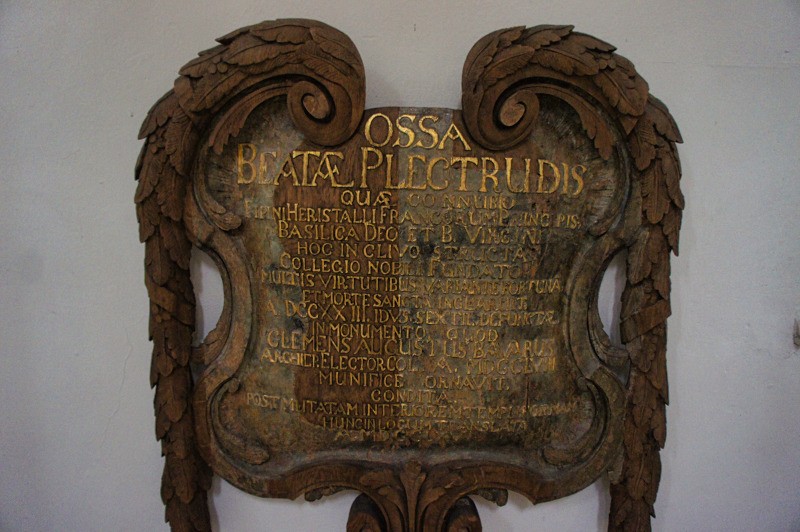 OSSA
BEATÆ PLECTRUDIS
QUÆ CONNUBIO
PIPINI HERISTALLI FRANCORUM PRINCIPIS
BASILICA DEO ET B. VIRGINI
HOC IN CLIVO STRUCTA
COLLEGIO NOBILI FUNDATO
MULTIS VIRTUTIBUS VARIANTE FORTUNA
ET MORTE SANCTA
A DCCXXIII. IDUS SEXTIL. DEFUNCTÆ
IN MONUMENTO QUOD
CLEMENS AUGUSTUS BAVARUS
ARCHIEP. ELECTOR COL. A.
MUNIFICE ORNAVIT.
CONDITA
POST MUTATAM INTERIOREM TEMPLI FORMAM
HUNC IN LOCUM TRANSLATA